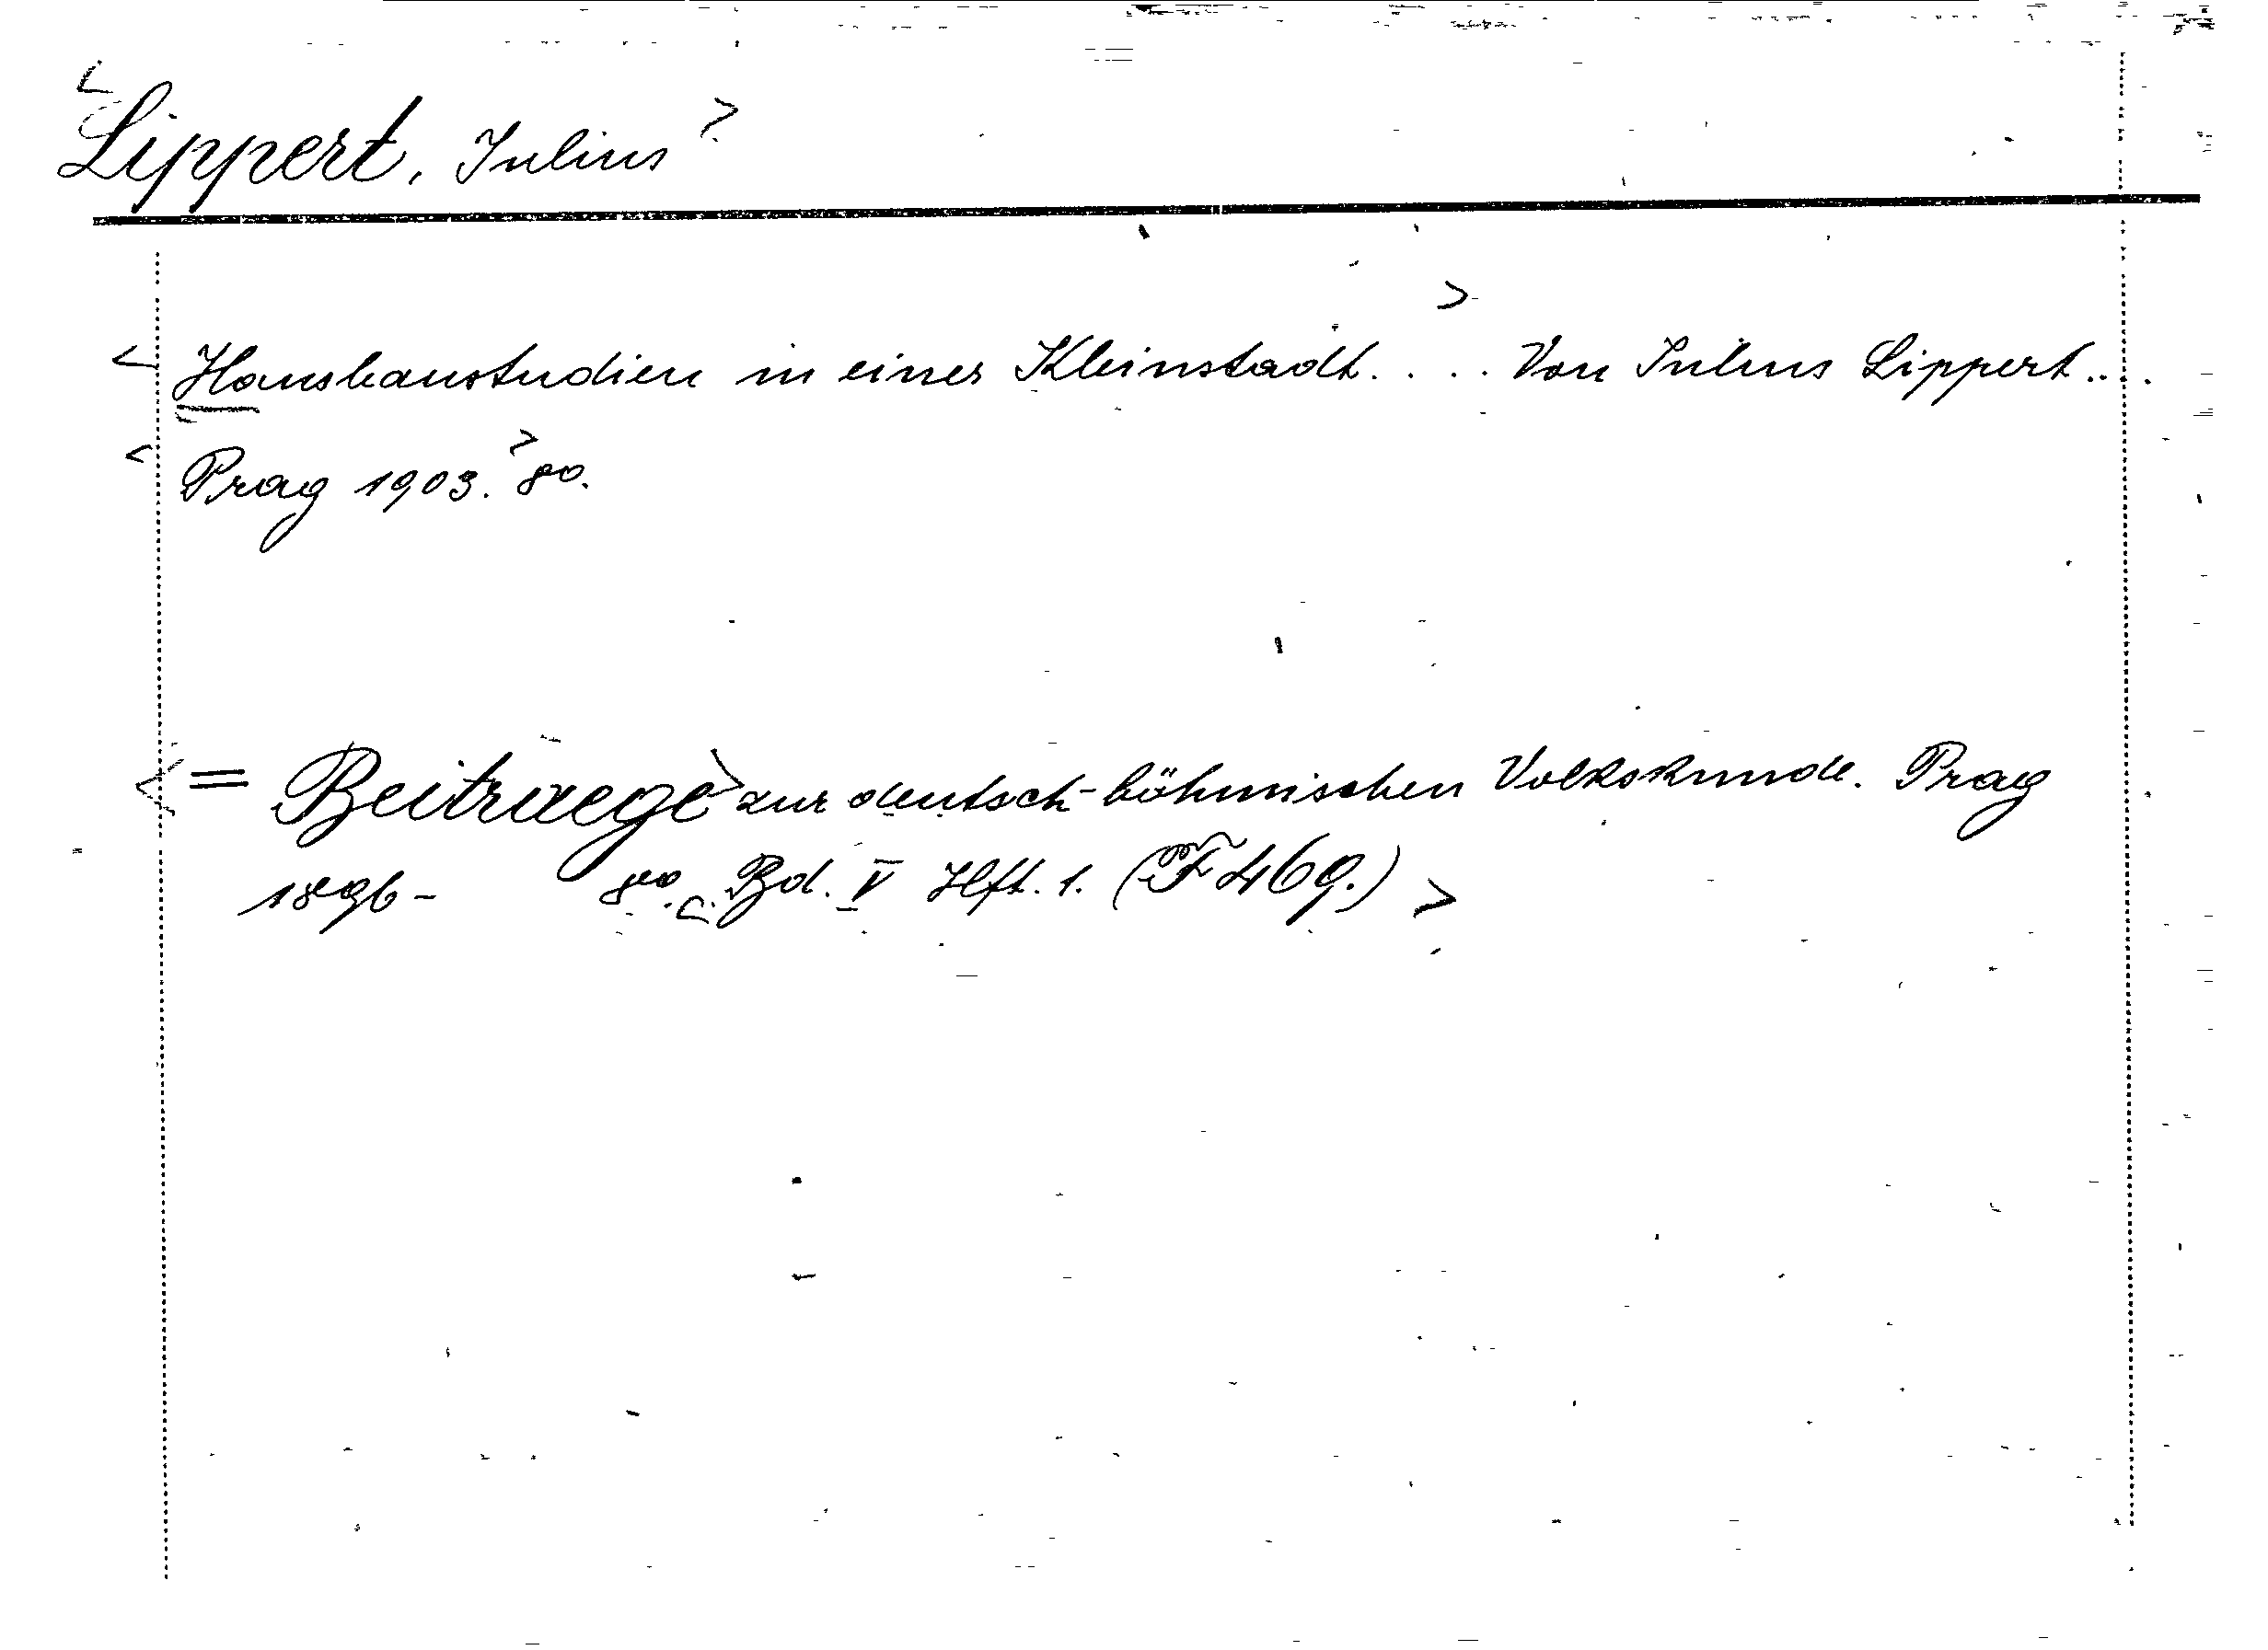 <Lippert, Julius>
<Hausbaustudien in einer Kleinstadt.> ... Von Julius Lippert....
<Prag 1903.> 8o.
<= Beitraege> zur deutsch-böhmischen Volkskunde. Prag
1896- 8o. <Bd. V Hft. 1. (F 469.)>